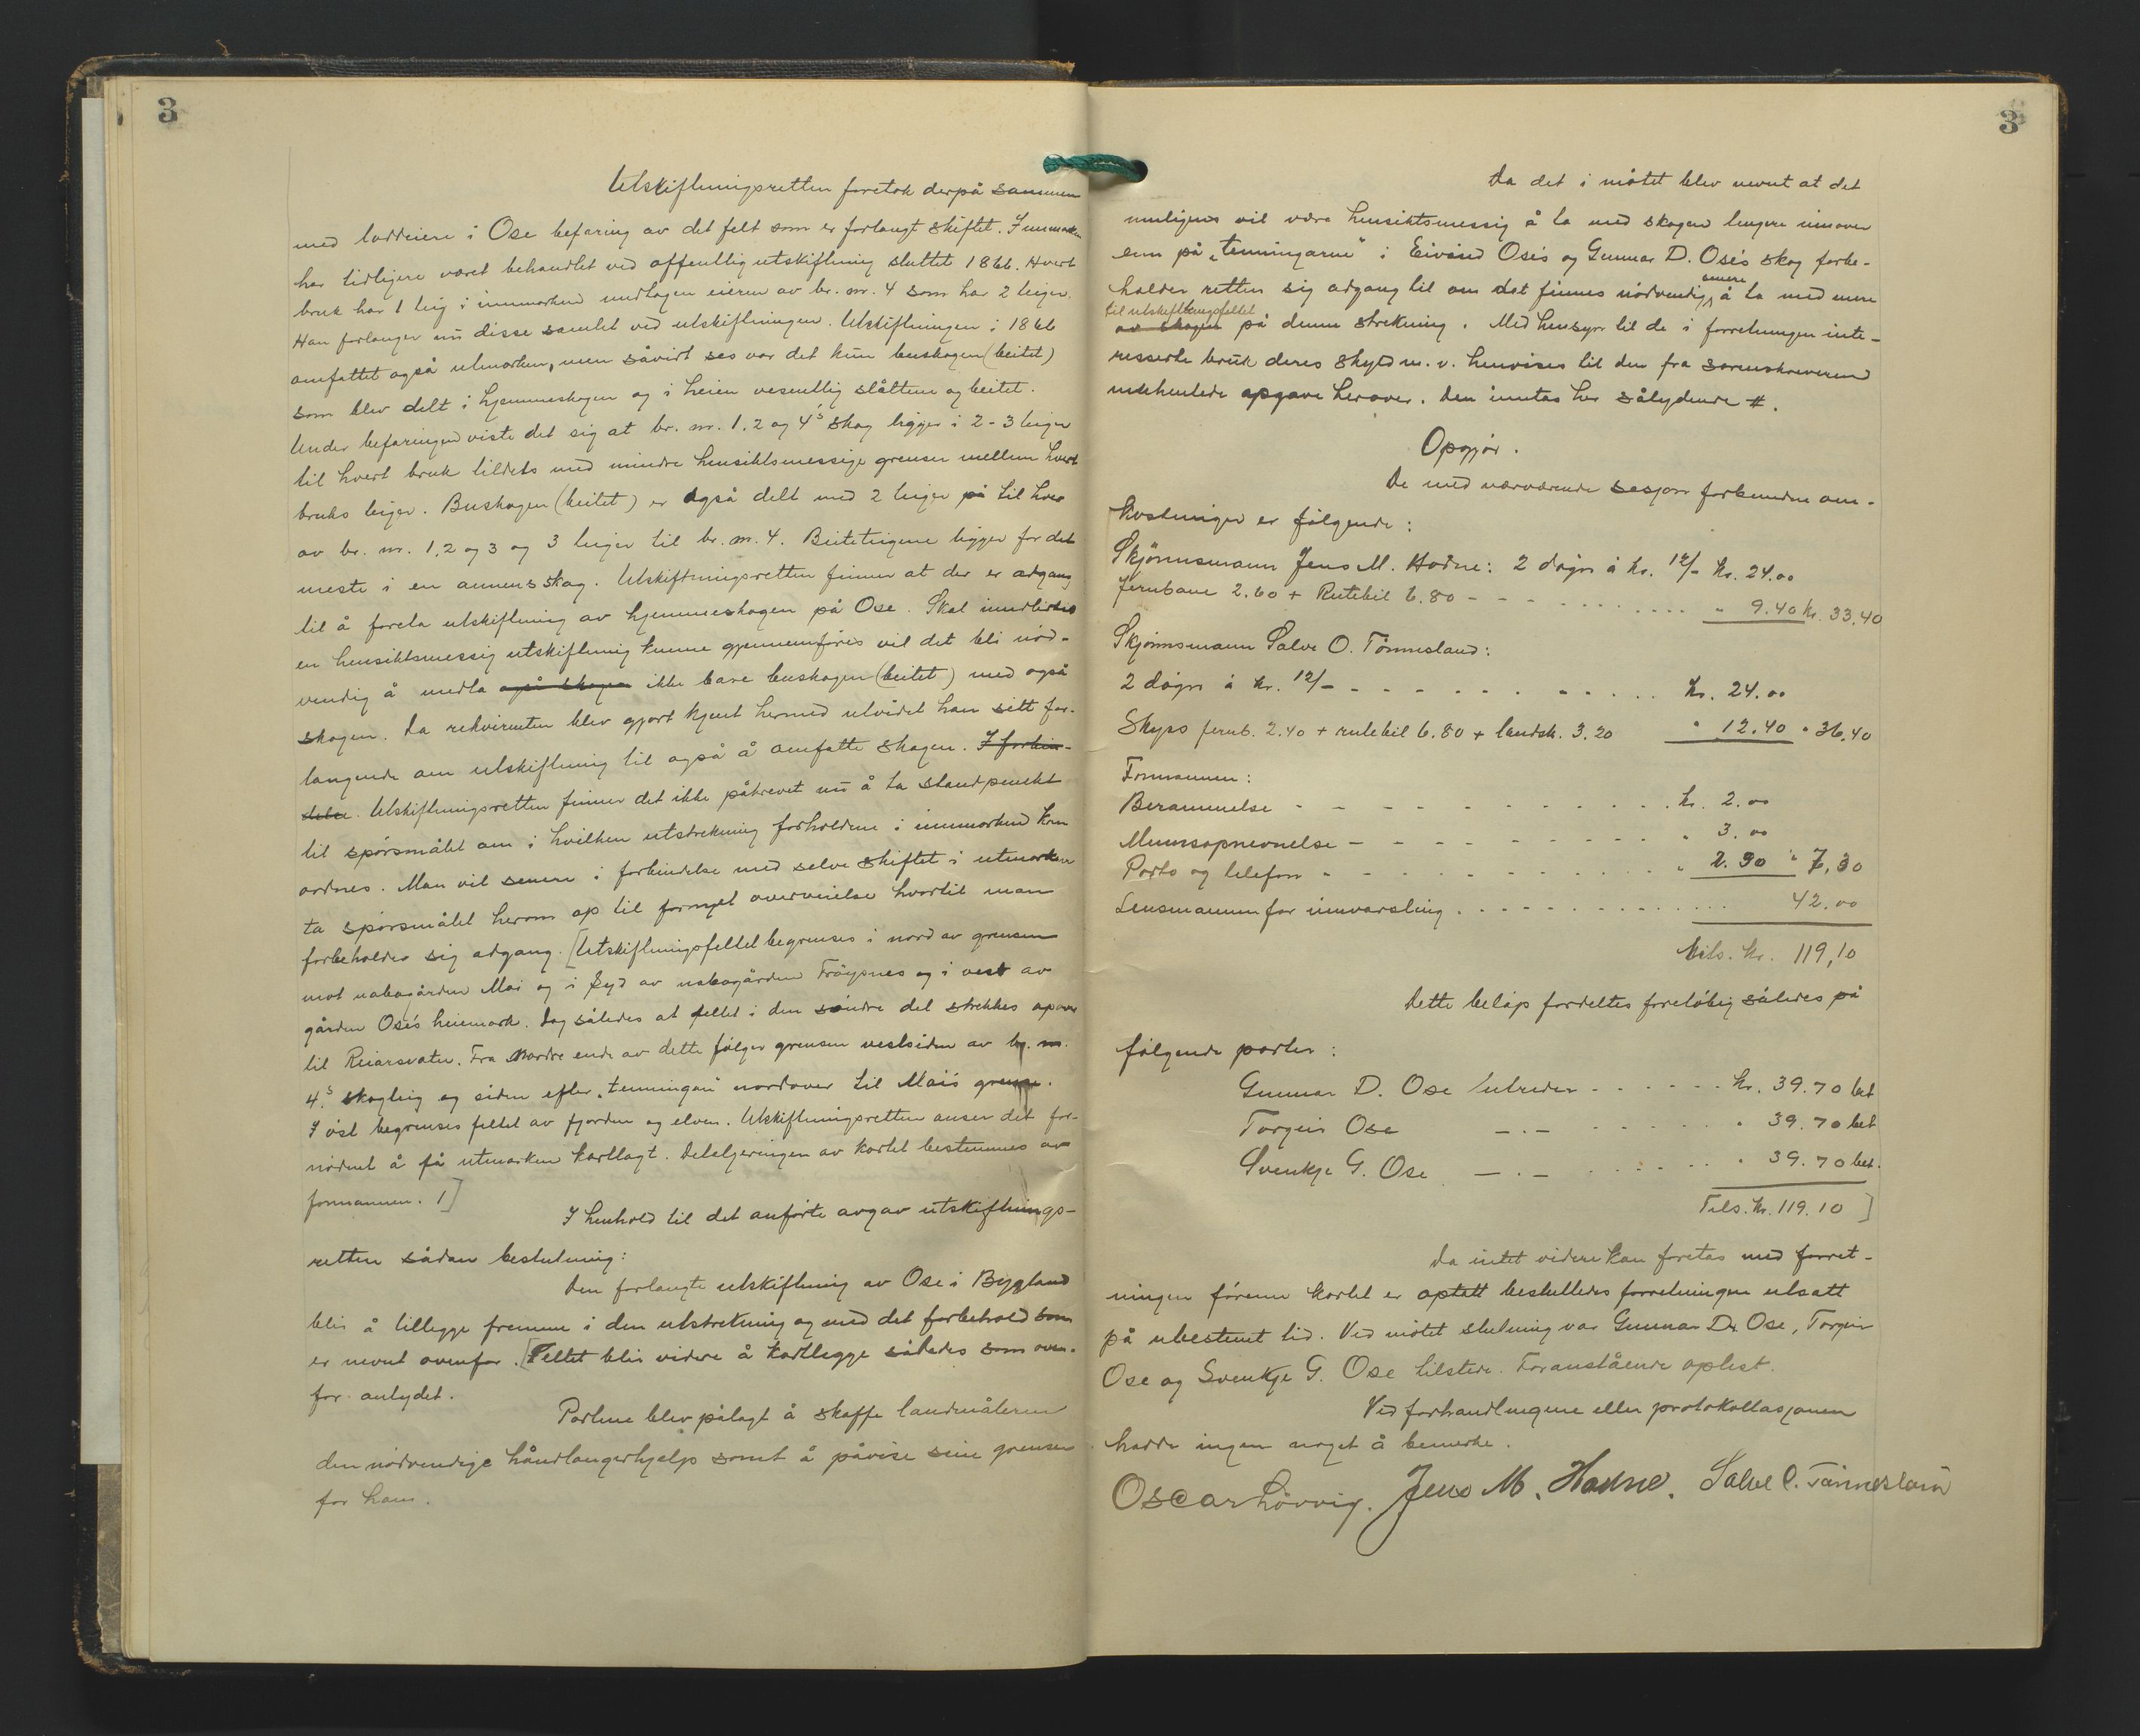 3
Utskiftningsretten foretok derpå sammen
med loddeiere i Ose befaring av det felt som er forlangt skiftet. Innmarken
har tidligere været behandlet ved offentlig utskiftning sluttet 1866. Hvert
bruk har 1 teig i innmarken undtagen eieren av br. nr. 4 som har 2 teiger.
Han forlanger nu disse samlet ved utskiftningen. Utskiftningen i 1866
omfattet også utmarken, men såvidt ses var det kun buskogen (beitet)
som blev delt i hjemmeskogen og i heien vesentlig slåttene og beitet.
Under befaringen viste det sig at br. nr. 1, 2 og 4's skog ligger i 2-3 teiger
til hvert bruk tildels med mindre hensiktsmessige grenser mellem hvert
bruks teiger. Buskogen (beitet) er også delt med 2 teiger på til hver
av br. nr. 1, 2 og 3 og 3 teiger til br. nr. 4. Beiteteigene ligger for det
meste i en annens skog. Utskiftningsretten finner at der er adgang
til å foreta utskiftning av hjemmeskogen på Ose. Skal imidlertid
en hensiktsmessig utskiftning kunne gjennemføres vil det bli nød-
vendig å medta også skogen ikke bare buskogen (beitet) med også
skogen. Da rekvirenten blev gjort kjent hermed utvidet han sitt for-
langende om utskiftning til også å omfatte skogen. I forbin-
delse. Utskiftningsretten finner det ikke påkrevet nu å ta standpunkt
til spørsmålet om i hvilken utstrekning forholdene i innmarken kan
ordnes. Man vil senere i forbindelse med selve skiftet i utmarken
ta spørsmålet herom op til fornyet overveielse hvortil man
forbeholder sig adgang. [Utskiftningsfeltet begrenses i nord av grensen
mot nabogården Moi og i syd av nabogården Frøysnes og i vest av
gården Ose's heiemark. Dog således at feltet i den søndre del strekkes opover
til Reiarsvatn. Fra nordre ende av dette følger grensen vestsiden av br. nr.
4's skogteig og siden efter "tenningan" nordover til Moi's grense.
I øst begrenses feltet av fjorden og elven. Utskiftningsretten anser det for-
nødent å få utmarken kartlagt. Detaljeringen av kartet bestemmes av
formannen. 1]
I henhold til det anførte avgav utskiftnings-
retten sådan beslutning:
Den forlangte utskiftning av Ose i Bygland
blir å tillegge fremme i den utstrekning og med det forbehold som
er nevnt ovenfor. [Feltet blir videre å kartlegge således som oven-
for antydet.
Partene blev pålagt å skaffe landmåleren
den nødvendige håndlangerhjelp samt å påvise sine grenser
for ham.
3
Da det i møtet blev nevnt at det
muligens vil være hensiktsmessig å ta med skogen lengere innover
enn på "tenningarne" i Eivind Ose's og Gunnar D. Ose's skog forbe-
holder retten sig adgang til om det finnes nødvendig senere å ta med mere
til utskiftningsfeltet
av skogen på denne strekning. Med hensyn til de i forretningen inte-
resserte bruk deres skyld m. v. henvises til den fra sorenskriveren
innhentede opgave herover. Den inntas her sålydende #.
Opgjør.
De med nærværende sesjon forbundne om-
kostninger er følgende:
Skjønnsmann Jens M. Hodne: 2 døgn à kr. 12/- kr. 24.00
Jernbane 2.60 + Rutebil 6.80 - - - - - " 9.40 kr. 33.40
Skjønnsmann Salve O. Tønnesland:
2 døgn à kr. 12/- - - - - - - - kr. 24.00
Skyss jernb. 2.40 + rutebil 6.80 + landsk. 3.20 " 12.40 " 36,40
Formannen:
Berammelse - - - - - - - - kr. 2.00
Mennsopnevnelse - - - - - - - " 3.00
Porto og telefon - - - - - - - " 2.30 " 7,30
Lensmannen for innvarsling . . . . . . . 42.00
Tils. kr. 119,10
Dette beløp fordeltes foreløbig således på
følgende parter:
Gunnar D. Ose utreder - - - - - - kr. 39.70 bet
Torgeir Ose —.— - - - - - " 39.70 bet
Svenkje G. Ose —.— - - - - " 39.70 bet.
Tils. kr. 119.10 ]
Da intet videre kan foretas med forret-
ningen førenn kartet er optatt besluttedes forretningen utsatt
på ubestemt tid. Ved møtet slutning var Gunnar D. Ose, Torgeir
Ose og Svenkje G. Ose tilstede. Foranstående oplest.
Ved forhandlingene eller protokollasjonen
hadde ingen noget å bemerke.
Oscar Løvvig. Jens M. Hodne. Salve O. Tønnesland